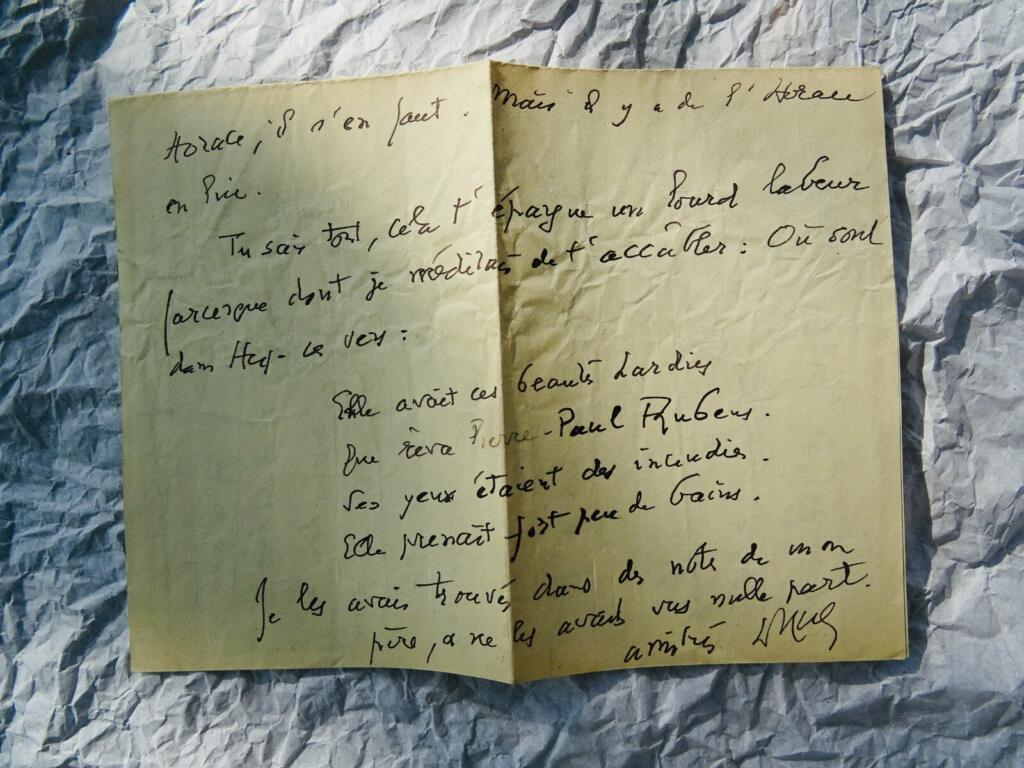 Horace, il s'en faut. Mais il y a de l'Horace
en lui.
Tu sais tout, cela t'épargne un lourd labeur
farcesque dont je méditais de t'accâbler : Où sont
dans Hugo ces vers :
Elle avait ces beautés hardies
Que rêva Pierre-Paul Rubens.
Ses yeux étaient des incendies.
Elle prenait fort peu de bains.
Je les avais trouvés dans des notes de mon
père, a ne les avait vus nulle part.
amitiés